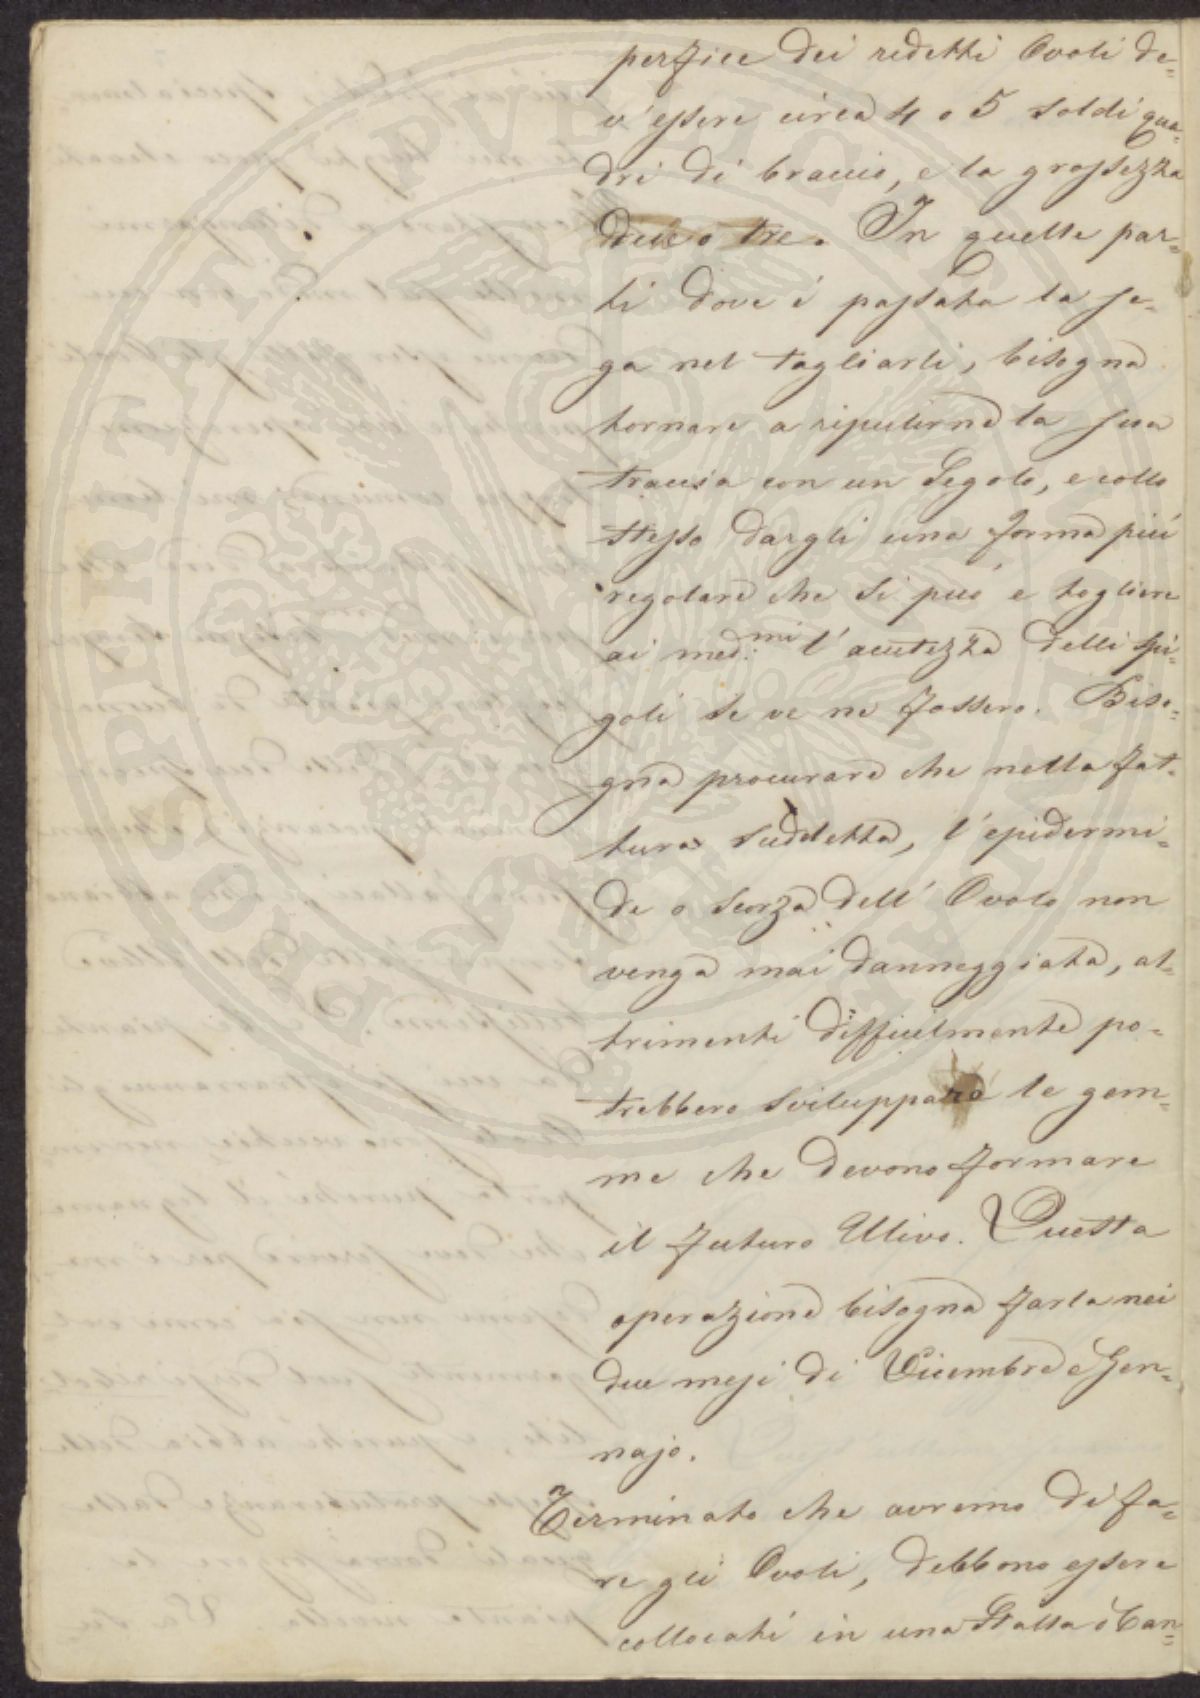 perfice dei redetti Ovoli de=
v'essere circa 4 o 5 soldi qua=
dri di braccio, e la grossezza
due o tre. In quelle par=
ti dove è passata la se=
ga nel tagliarli, bisogna
tornare a ripulirne la sua
traccia con un Segolo, e collo
stesso dargli una forma più
regolare che si può e togliere
ai med:mi l'acutezza delli spi=
goli se ve ne fossero. Biso=
gna procurare che nella fat=
tura suddetta, l'epidermi=
de o scorza dell'Ovolo non
venga mai danneggiata, al=
trimenti difficilmente po=
trebbero sviluppare le gem=
me che devono formare
il futuro Ulivo. Questa
operazione bisogna farla nei
due mesi di Dicembre e Gen=
najo.
Terminato che avremo di fa=
re gli Ovoli, debbono essere
collocati in una Stalla o Can=
PROSPERITATI PVBLICAE AVGENDAE